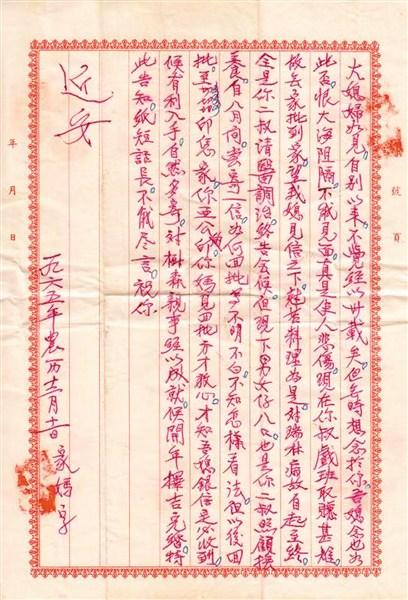 大媳婦如見自别以来不覺經以廿載矣但每時想念於你吾媳念也如
此否恨大海阻隔不能見面真是使人悲傷現在你叔戲班取賺甚难
故无家批到家望我媳見信之下经苦料理為是对瑞林病故自起至終
全是你二叔請醫調治終告无候但現下男女仔八人也是你二叔照顧撫
養有八月间蒙寄一信为何回批等不明不白不知怎樣看法但以後回
批至器印您家你亚公印你媽見回批方才敢心才知吾媳銀信是必收到
候有利入手自然多寄对樹森親事經以成就候開年擇吉完婚特
此告知紙短話長不能尽言祝你
近安
一九六五年農历十二月十一日
家媽字
年 月 日
號 頁